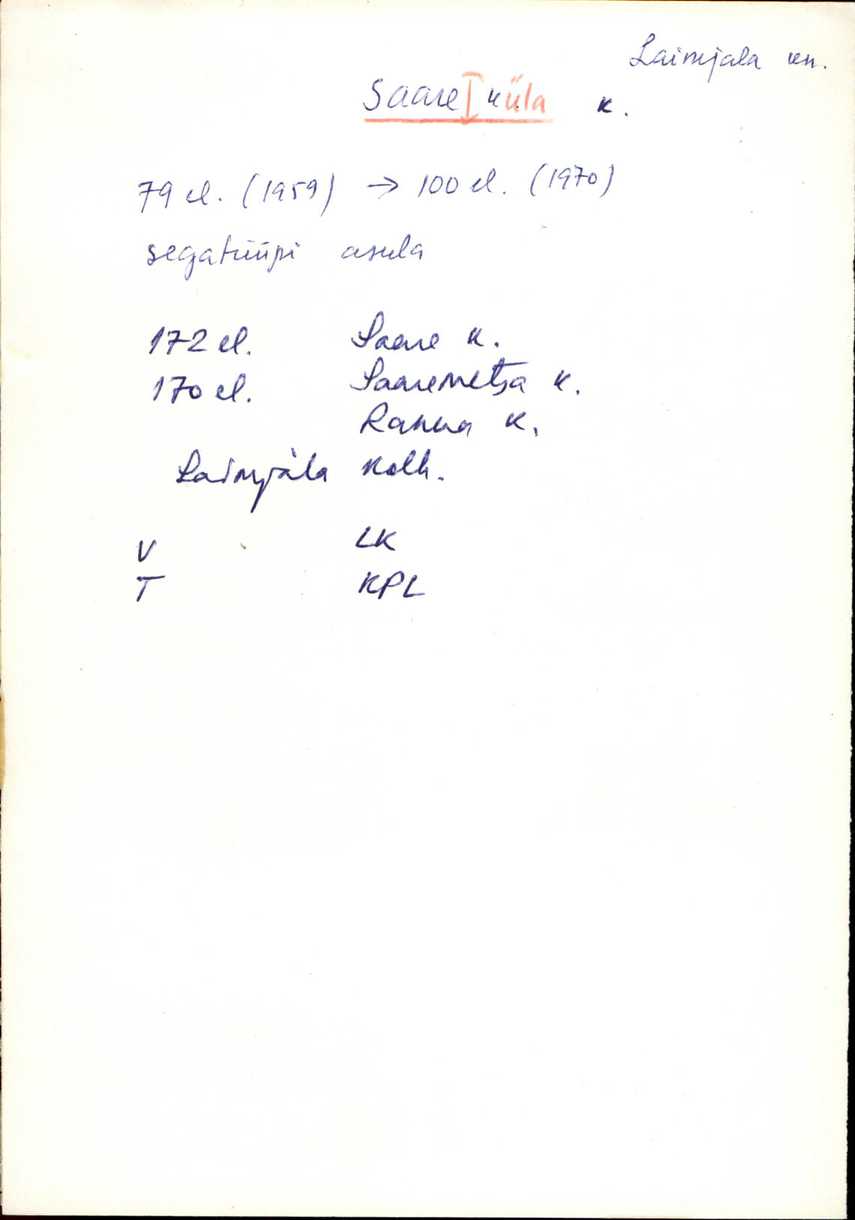 Laimjala kn.
Saareküla k.
79 el. (1959) → 100 el. (1970)
segatüüpi asula
172 el. Saare k.
170 el. Saaremetsa k.
Rahna k.
Laimjala kolh.
V LK
T KPL